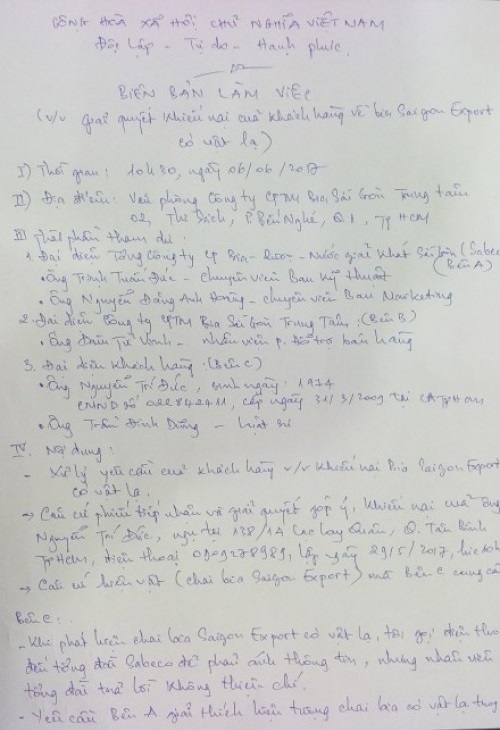 CỘNG HÒA XÃ HỘI CHỦ NGHĨA VIỆT NAM
Độc lập - Tự do - Hạnh phúc.
BIÊN BẢN LÀM VIỆC
(v/v giải quyết khiếu nại của khách hàng về bia Saigon Export
có vật lạ)
I) Thời gian: 10h30, ngày 06/06/2017
II) Địa điểm: Văn phòng Công ty CPTM Bia Sài Gòn Trung tâm
02, Thi Sách, P. Bến Nghé, Q1, Tp HCM
III Thành phần tham dự:
1. Đại diện Tổng Công ty CP Bia - Rượu - Nước giải khát Sài Gòn (Sabeco)
(Bên A)
• Ông Trịnh Tuấn Đức - chuyên viên Ban Kỹ thuật
• Ông Nguyễn Đặng Anh - chuyên viên Ban Marketing
2. Đại diện Công ty CPTM Bia Sài Gòn Trung Tâm: (Bên B)
• Ông Vinh - nhân viên P. Hỗ trợ bán hàng
3. Đại diện khách hàng: (Bên C)
• Ông Nguyễn Trí Đức, sinh ngày: 1974
CMND số 022842411, cấp ngày 31/3/2009 tại CA TpHCM
• Ông Trần Đình Dũng - Luật sư
IV. Nội dung:
- Xử lý yêu cầu của khách hàng v/v khiếu nại Bia Saigon Export
có vật lạ.
→ Căn cứ phiếu tiếp nhận và giải quyết góp ý, khiếu nại của Ông
Nguyễn Trí Đức, ngụ tại 138/1A Lạc Long Quân, Q. Tân Bình
TpHCM, điện thoại 0909278989, lập ngày 29/5/2017, lúc
→ Căn cứ hiện vật (chai bia Saigon Export) mà Bên C cung cấp
Bên C:
- Khi phát hiện chai bia Saigon Export có vật lạ, tôi gọi điện thoại
đến tổng đài Sabeco để phản ánh thông tin, nhưng nhân viên
tổng đài trả lời không thiện chí.
- Yêu cầu Bên A giải thích hiện tượng chai bia có vật lạ trong